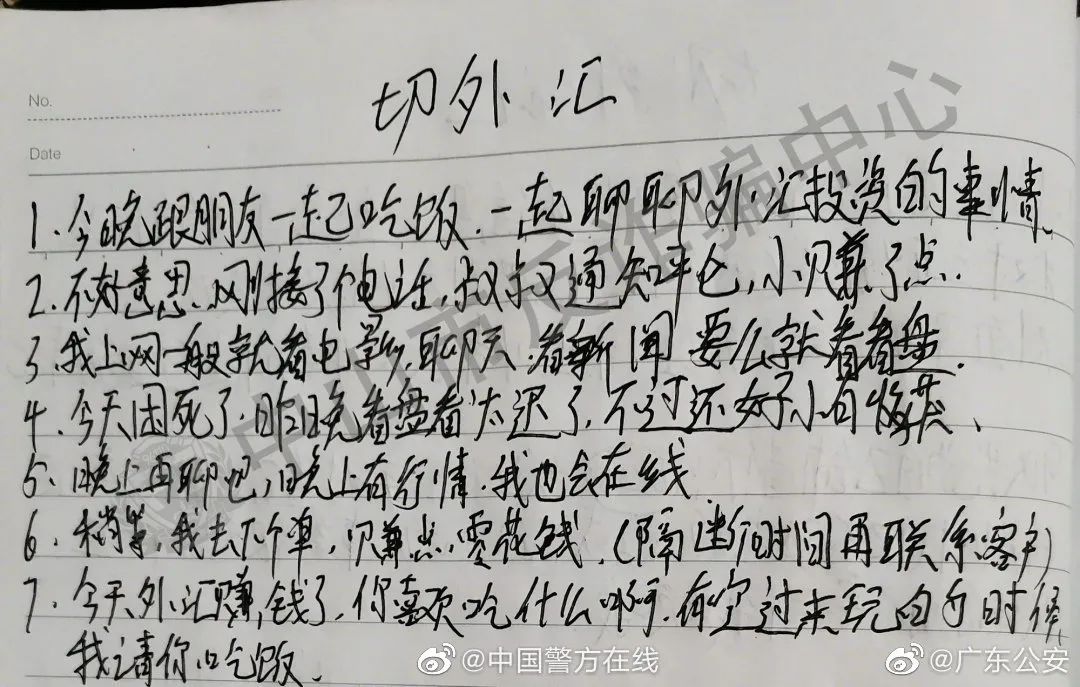 No.
切外汇
Date
1、今晚跟朋友一起吃饭.一起聊聊外汇投资的事情、
2、不好意思、刚接了个电话,叔叔通知平仓,小赚了点.
3、我上网一般就看电影,聊天、看新闻 要么就看看盘.
4、今天困死了,昨晚看盘看太迟了,不过还好小有收获、
5、晚上再聊吧,晚上有行情.我也会在线
6、稍等,我去下个单,赚点零花钱.(隔断时间再联系客户)
7、今天外汇赚钱了,你喜欢吃什么啊,有空过来玩的时候
我请你吃饭、
中山市反诈骗中心
@中国警方在线
@广东公安